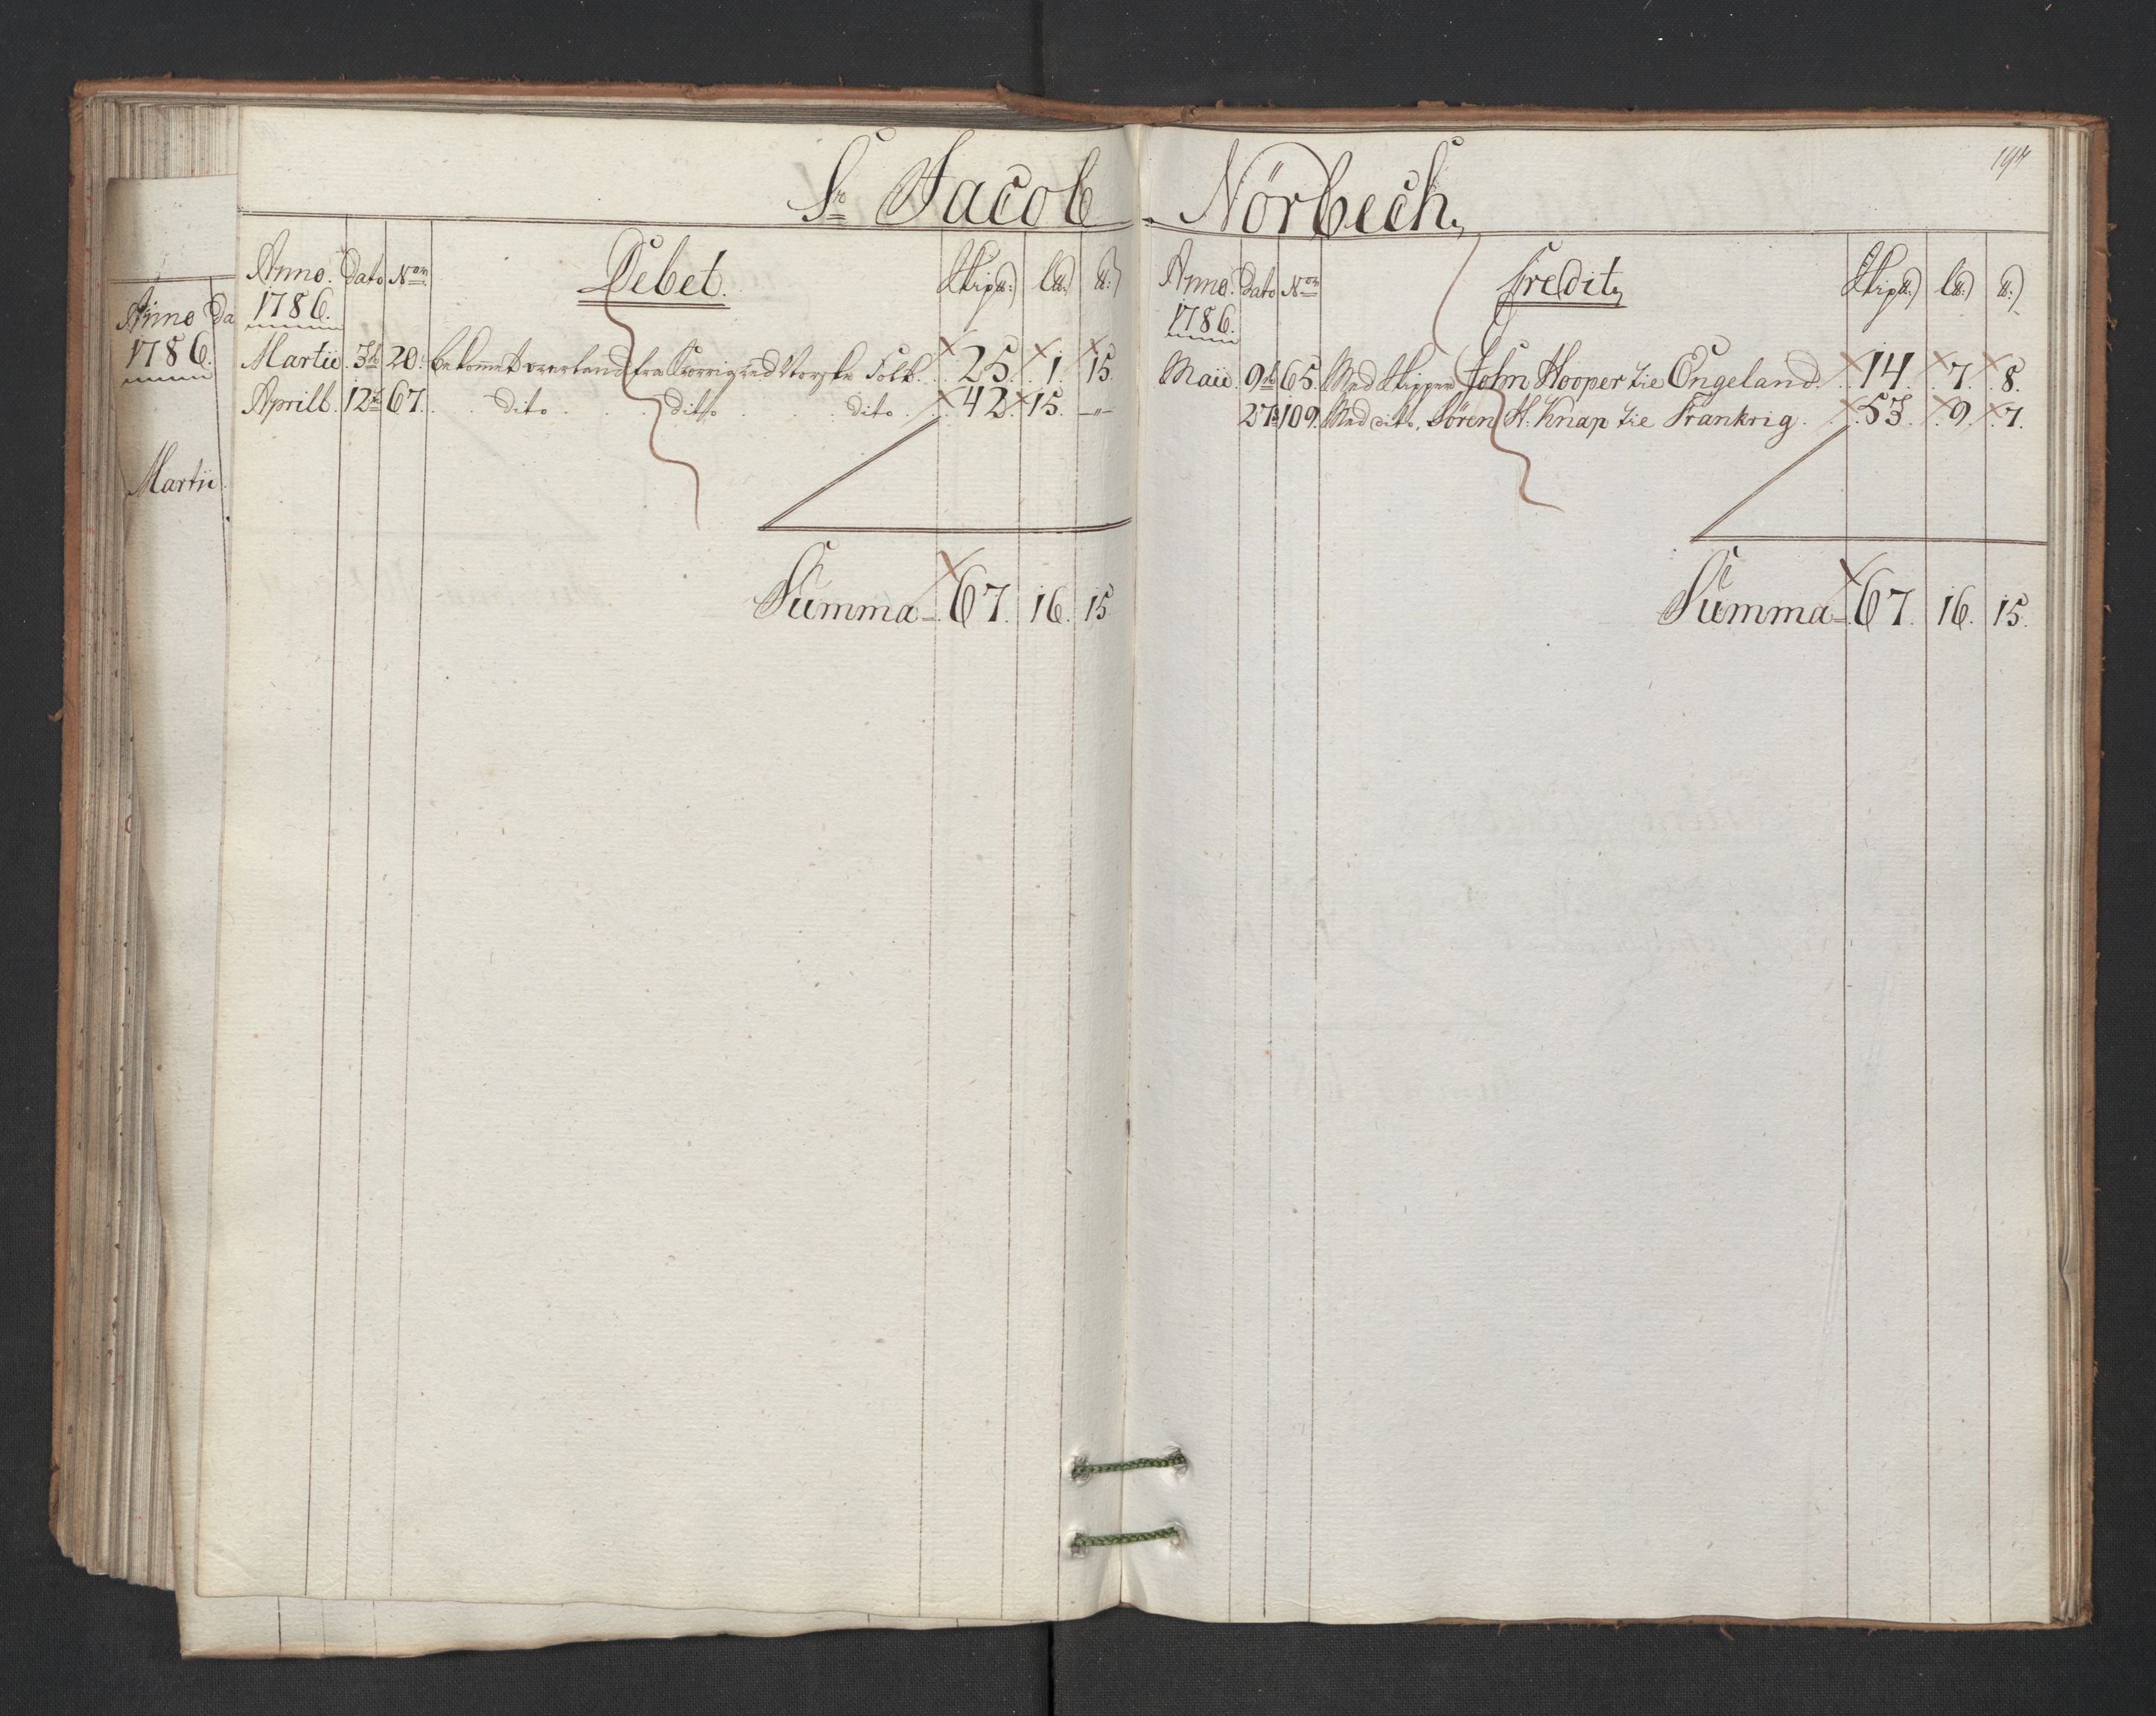 197
Sr Jacob Nörbech,
Anno. Dato Nom Debet. Skip℔:) L℔:) ℔:)
1786.
Martii. 3de 20. bekommet overland fra Sverrig ved Norske Folk. 25. 1. 15
Aprill. 12te 67. dito ditto dito 42. 15. -"-
Summa 67. 16. 15
Anno. Dato Nom Credit, Skip℔:) L℔:) ℔:)
1786.
Maii. 9de 65. Med Skipper John Hooper tie Engeland. 14. 7. 8.
27 109. Med dito, Sören H: Knap tie Frankrig. 53. 9. 7.
Summa 67. 16. 15.
Anno Da
1786.
Martii